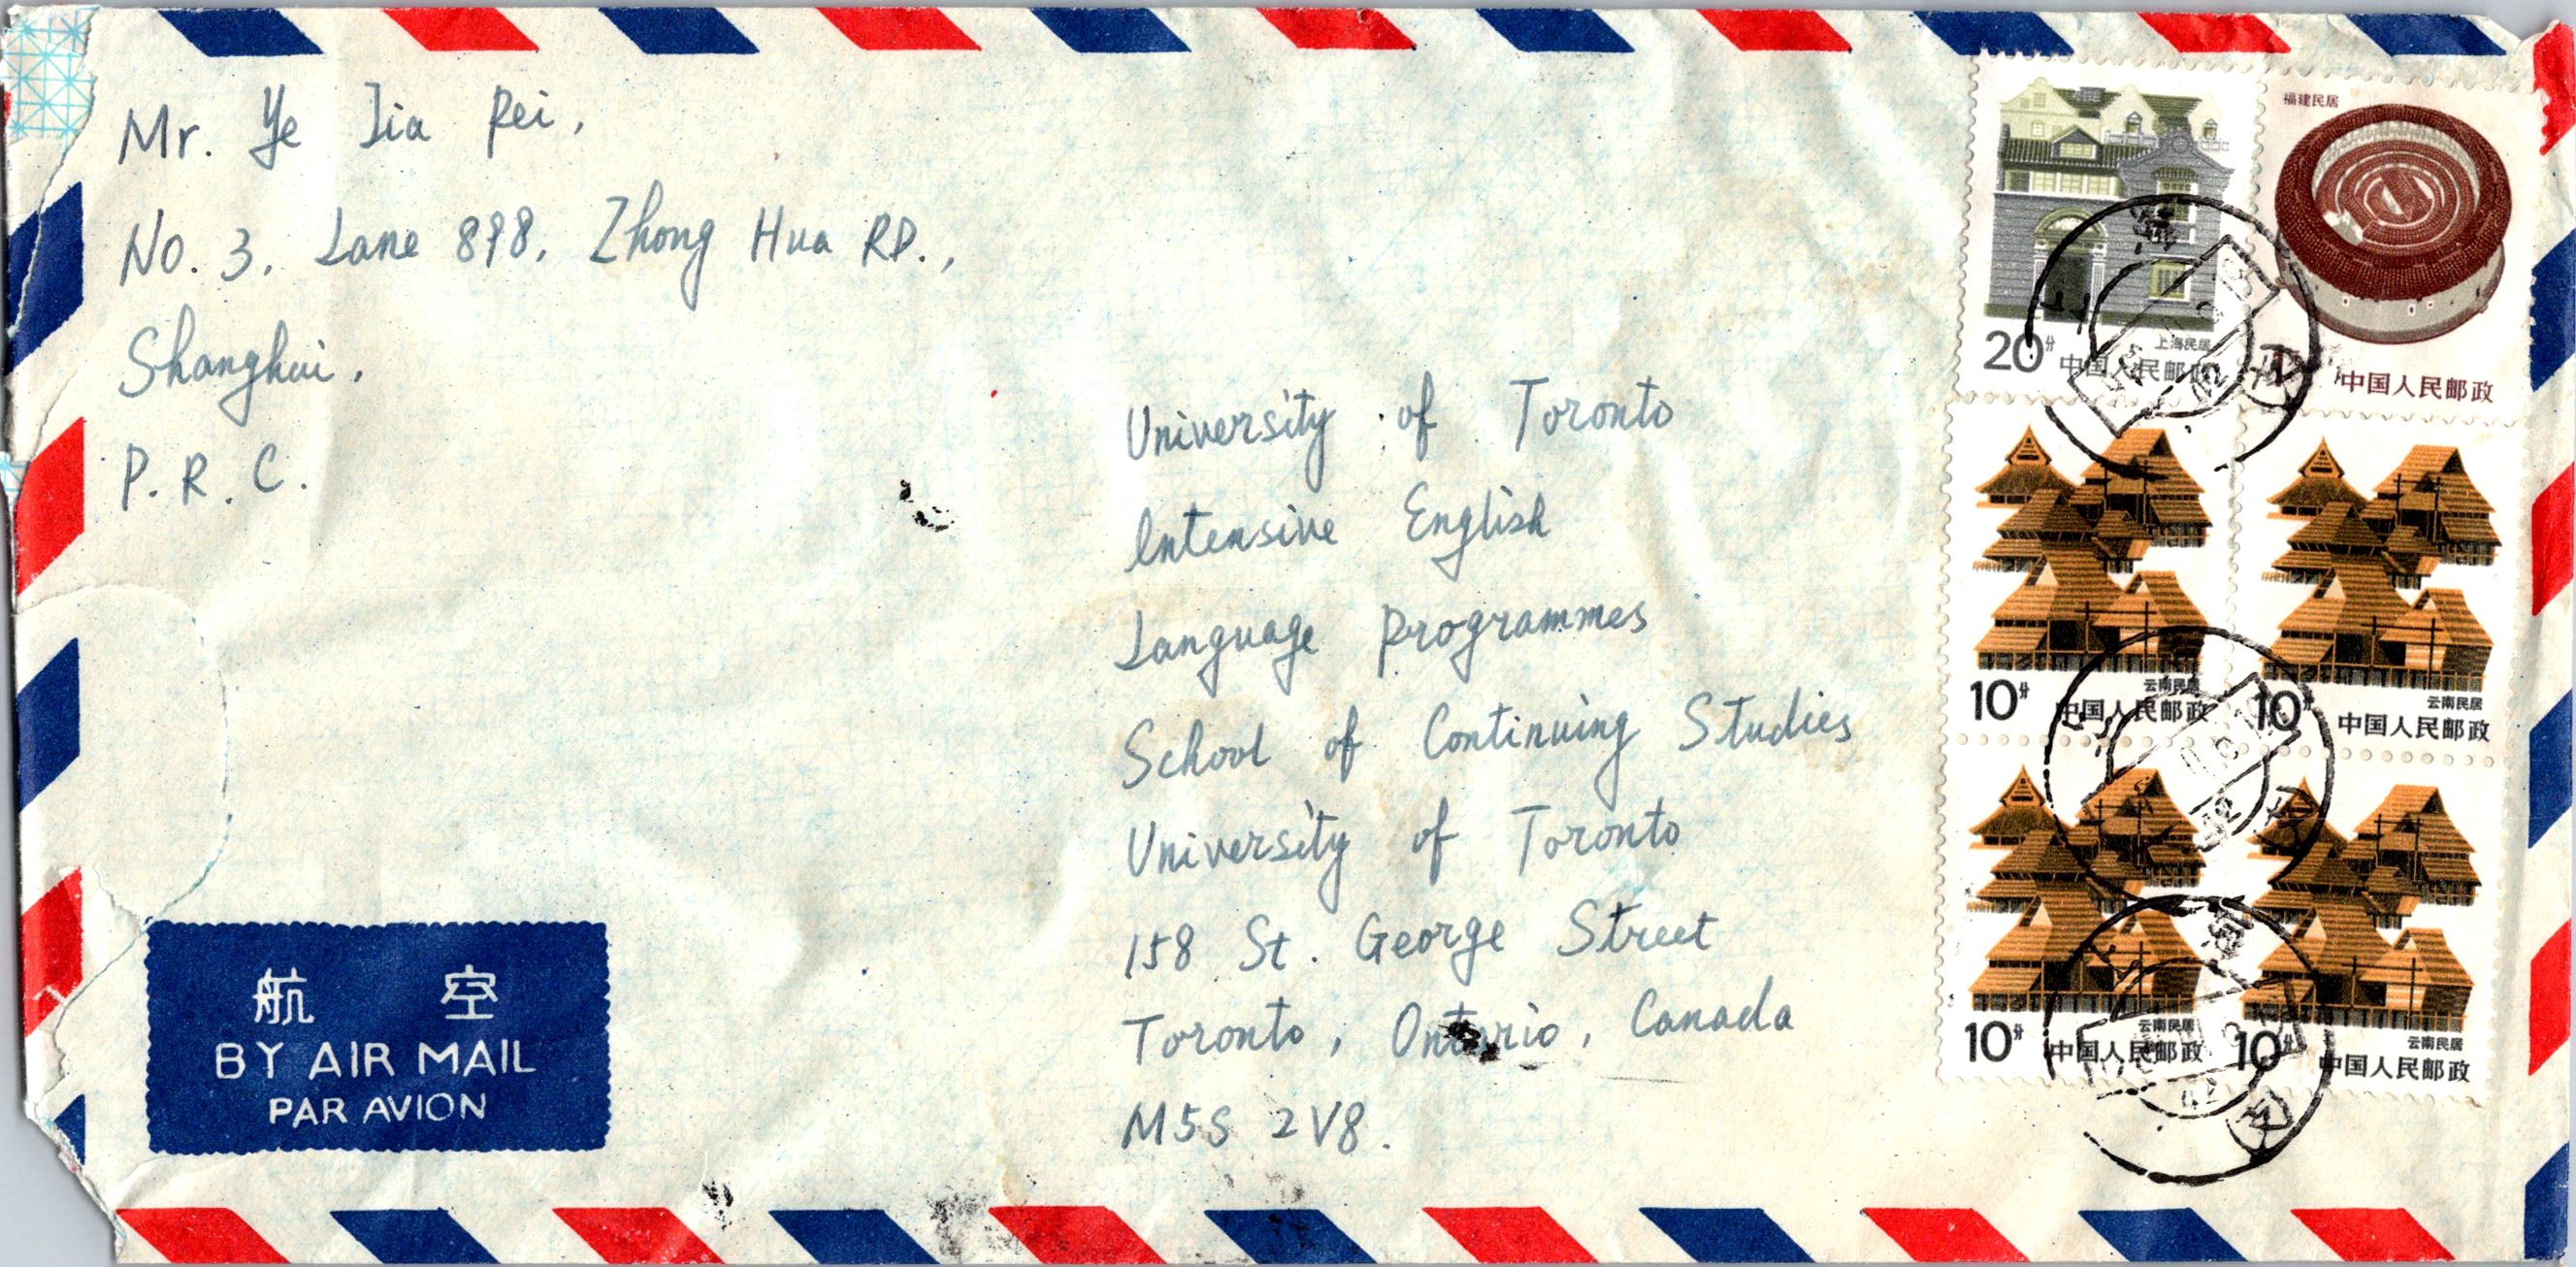 Mr. Ye Jia Pei,
No. 3, Lane 898, Zhong Hua RD.,
Shanghai,
P. R. C.
University of Toronto
Intensive English
Language Programmes
School of Continuing Studies
University of Toronto
158 St. George Street
Toronto, Ontario, Canada
M5S 2V8.
航 空
BY AIR MAIL
PAR AVION
20分
上海民居
中国人民邮政
福建民居
中国人民邮政
10分
云南民居
中国人民邮政
10分
云南民居
中国人民邮政
10分
云南民居
中国人民邮政
10分
云南民居
中国人民邮政